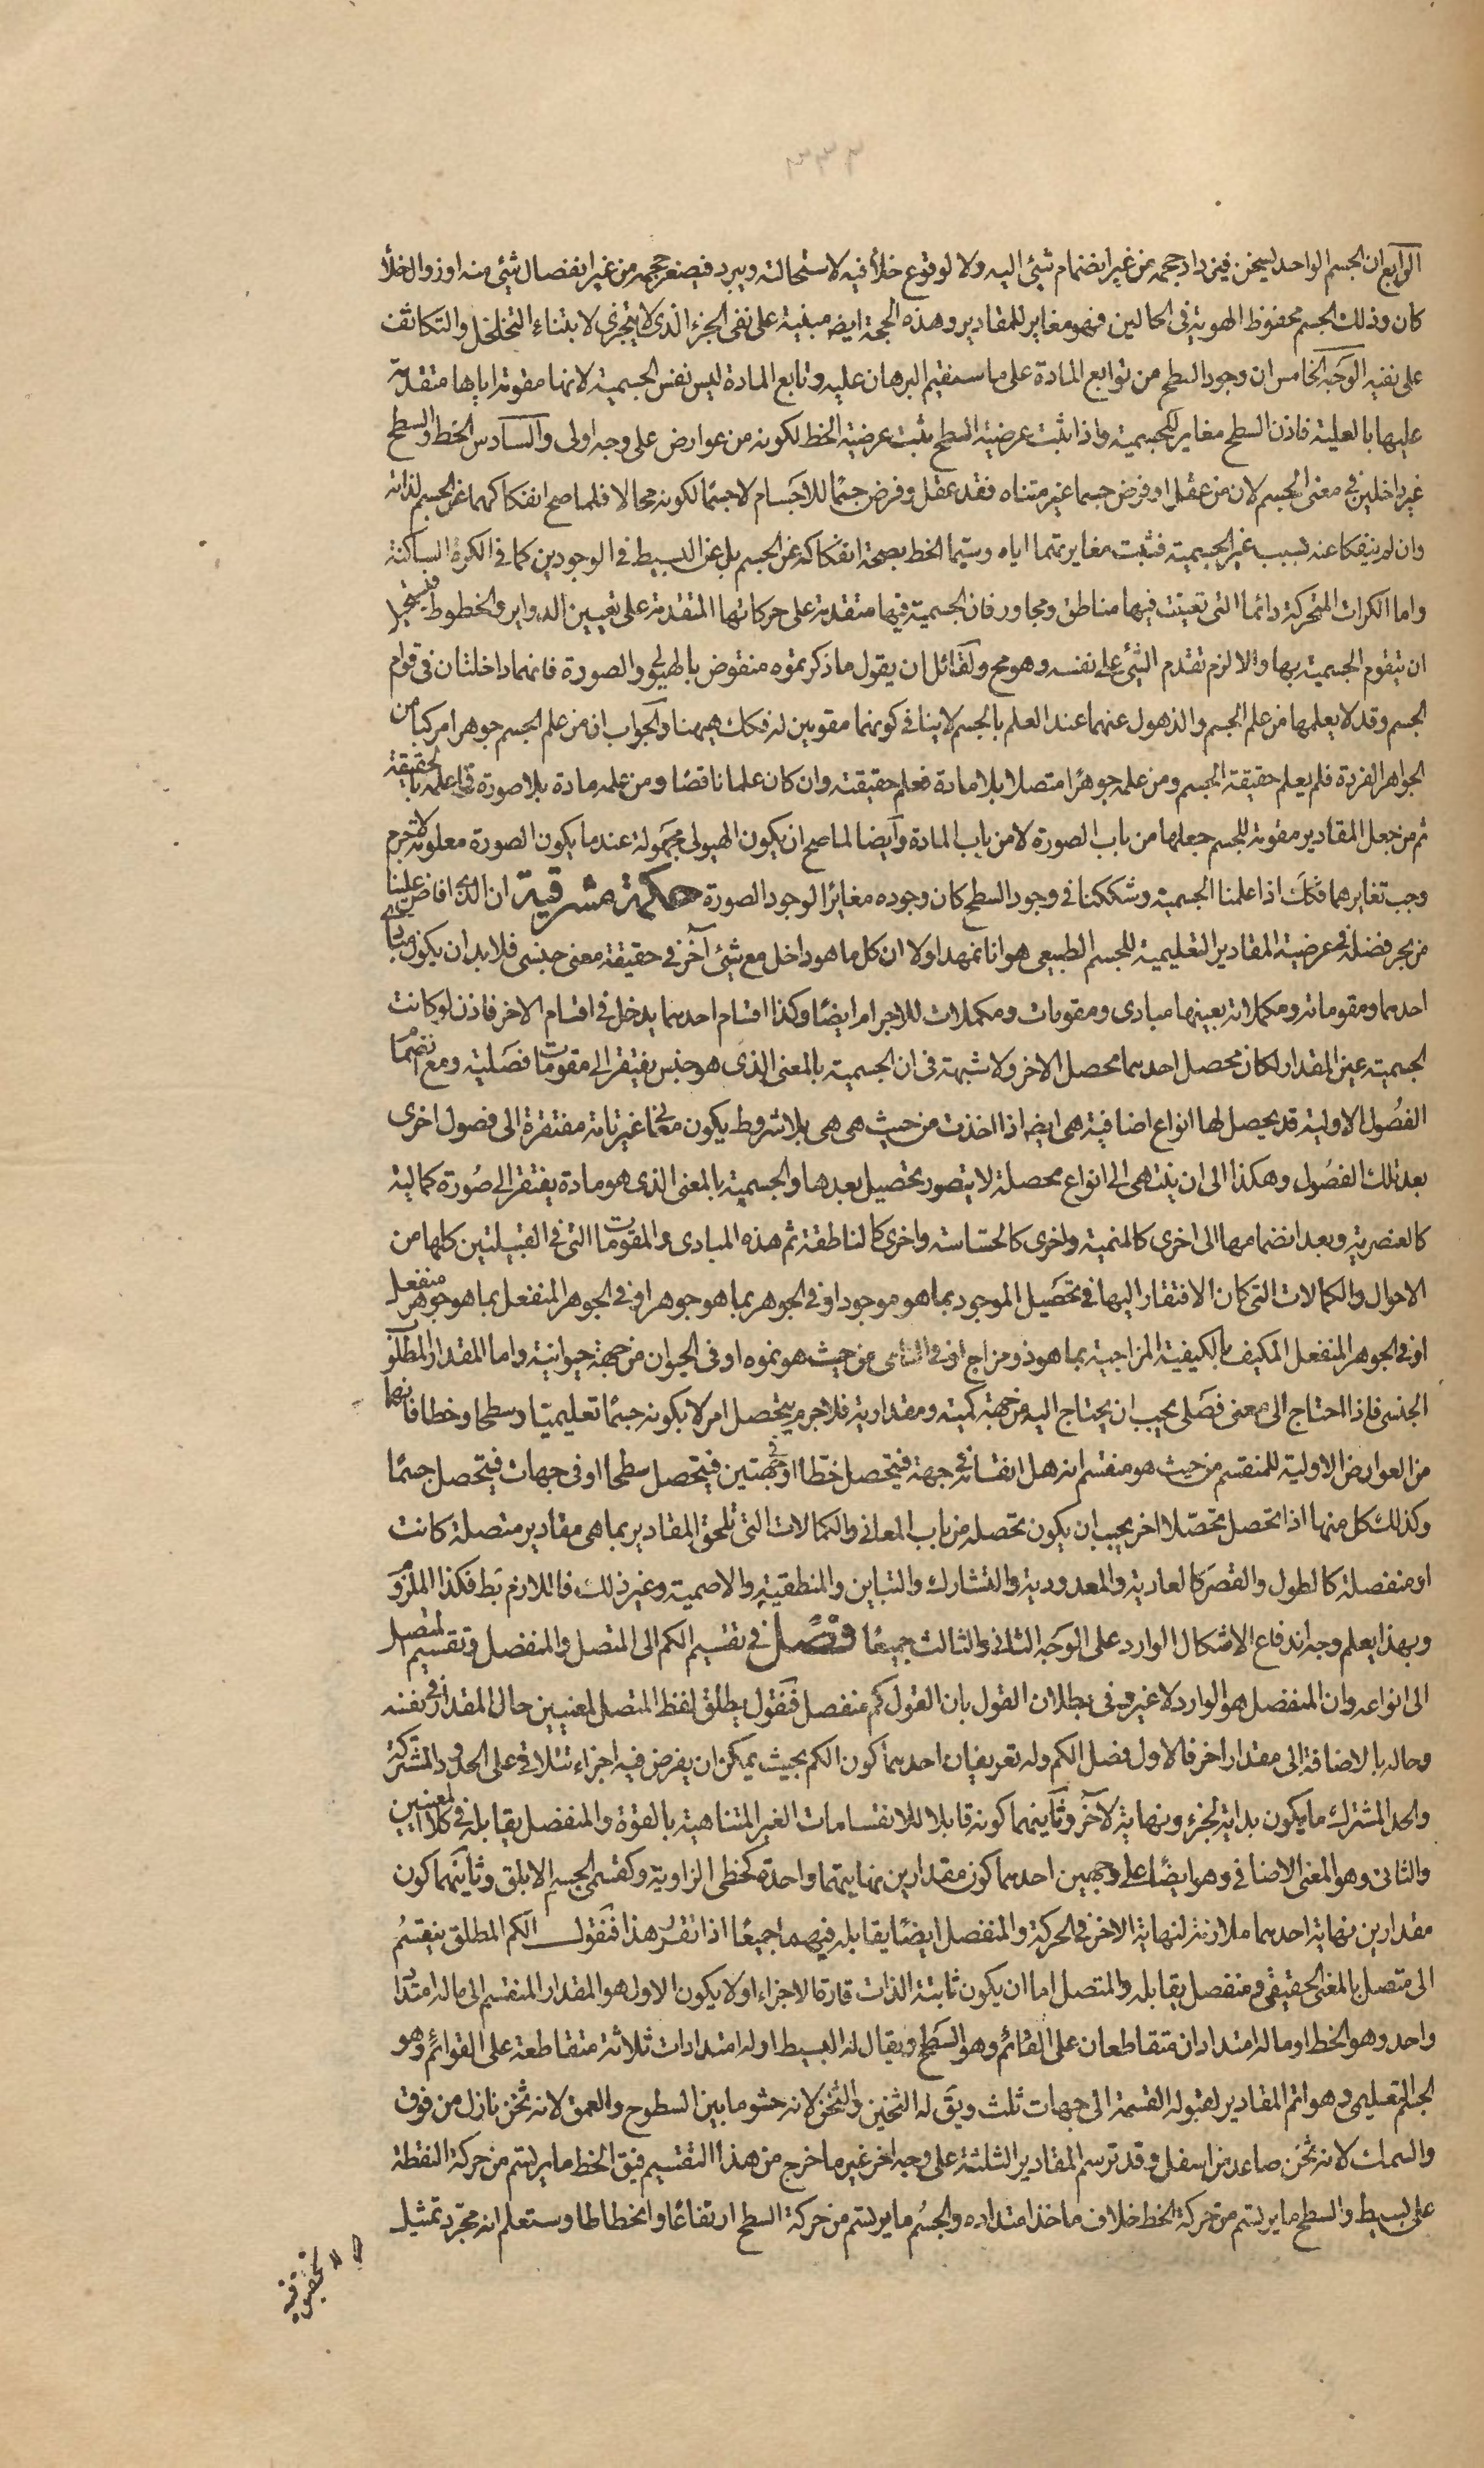 ٣٣٣
الرابع ان الجسم الواحد ليسخن فيزداد حجمه من غير انضمام شيئ اليه ولا لوقوع خلأ فيه لاستحالته ويبرد فيصغر حجمه من غير انفصال شيئ منه او زوال خلأ
كان وذلك الجسم محفوظ الهوية فى الحالين فهو مغاير للمقادير وهذه الحجة ايضه مبنية على نفى الجزء الذى لا يتجزى لابتناء التخلخل والتكاثف
على نفيه الوجه الخامس ان وجود السطح من توابع المادة على ما سنقيم البرهان عليه وتابع المادة ليس نفس الجسمية لانها مقومة اياها متقدمة
عليها بالعلية فاذن السطح مغاير للجسمية واذا ثبت عرضية السطح يثبت عرضية الخط لكونه من عوارضه على وجه اولى والسادس الخط والسطح
غير داخلين فى معنى الجسم لان من عقل او فرض جسما غير متناه فقد عقل وفرض جسمًا للاجسام لا جسمًا لكونه محالا فلما صح انفكاكهما عن الجسم لذاته
وان لم ينفكا عنه بسبب غير الجسمية فثبت مغايرتهما اياه وسيّما الخط بصحة انفكاكه عن الجسم بل عن البسيط فى الوجودين كما فى الكرة الساكنة
واما الكرات المتحركة دائما التى تعينت فيها مناطق ومحاور فان الجسمية فيها متقدمة على حركاتها المتقدمة على تعيين الدواير والخطوط فيستحيل
ان يتقوم الجسمية بها والا لزم تقدم الشيئ على نفسه وهو مح ولقائل ان يقول ما ذكرتموه منقوض بالهيولى والصورة فانهما داخلتان فى قوام
الجسم وقد لا يعلمها من علم الجسم والذهول عنهما عند العلم بالجسم لا ينافى كونهما مقومين له فكك هيهنا والجواب ان من علم الجسم جوهرا مركبا من
الجواهر الفردة فلم يعلم حقيقة الجسم ومن علمه جوهرًا متصلا بلا مادة فعلم حقيقته وان كان علما ناقصًا ومن علمه مادة بلا صورة فما علمه بالحقيقة
ثم من جعل المقادير مقومة للجسم جعلها من باب الصورة لا من باب المادة وايضا لما صح ان يكون الهيولى مجهولة عندما يكون الصورة معلومة لا جرم
وجب تغايرهما فكك اذا علمنا الجسمية وشككنا فى وجود السطح كان وجوده مغايرًا لوجود الصورة حكمة مشرقية ان الذى افاض علينا
من بحر فضله فى عرضية المقادير التعليمية للجسم الطبيعى هو انا نمهد اولا ان كل ما هو داخل مع شيئ آخر فى حقيقة معنى جنسى فلا بد ان يكون مبادى
احدهما ومقوماته ومكملاته بعينها مبادى ومقومات ومكملات للاجرام ايضًا وكذا اقسام احدهما يدخل فى اقسام الاخر فاذن لو كانت
الجسمية عين المقدار لكان محصل احدهما محصل الاخر ولا شبهة فى ان الجسمية بالمعنى الذى هو جنس يفتقر الى مقومات فصلية ومع تتمّها
الفصول الاولية قد يحصل لها انواع اضافية هى ايضه اذا اخذت من حيث هى هى بلا شروط يكون معانى غير تامة مفتقرة الى فصول اخرى
بعد تلك الفصول وهكذا الى ان ينتهى الى انواع محصلة لا يتصور تحصيل بعدها والجسمية بالمعنى الذى هو مادة يفتقر الى صورة كمالية
كالعنصرية وبعد انضمامها الى اخرى كالمنمية واخرى كالحسّاسة واخرى كالناطقة ثم هذه المبادى والمقومات التى فى القبيلتين كلها من
الاحوال والكمالات التى كان الافتقار اليها فى تحصيل الموجود بما هو موجود او فى الجوهر بما هو جوهر او فى الجوهر المنفعل بما هو جوهر منفعل
او فى الجوهر المنفعل المكيف بالكيفية المزاجية بما هو ذو مزاج او فى النامى من حيث هو نموه او فى الحيوان من جهة حيوانية واما المقدار المطلق
الجنسى فاذا احتاج الى معنى فصلى يجب ان يحتاج اليه من جهة كمية ومقدارية فلا جرم يتحصل امر لا بكونه جسمًا تعليميّا وسطحا وخطا فانهما
من العوارض الاولية للمنقسم من حيث هو منقسم انه هل انقسامه فى جهة فيتحصل خطّا او فى جهتين فيتحصل سطحا او فى جهات فيتحصل جسمًا
وكذلك كل منها اذا تحصل تحصّلا اخر يجب ان يكون تحصله من باب المعانى والكمالات التى تلحق المقادير بما هى مقادير متصلة كانت
او منفصلة كالطول والقصر كالعادية والمعدودية والتشارك والتباين والمنطقية والاصمية وغير ذلك فاللازم بط فكذا الملزوم
وبهذا يعلم وجه اندفاع الاشكال الوارد على الوجه الثانى والثالث جميعًا فصل فى تقسيم الكم الى المتصل والمنفصل وتقسيم المتصل
الى انواعه وان المنفصل هو الوارد لا غير وفى بطلان القول بان القول كم منفصل فنقول يطلق لفظ المتصل لمعنيين حال المقدار فى نفسه
وحاله بالاضافة الى مقدار اخر فالاول فصل الكم وله تعريفان احدهما كون الكم بحيث يمكن ان يفرض فيه اجزاء تتلاقى على الحدود المشتركة
والحد المشترك ما يكون بداية لجزء ونهاية لآخر وثانيهما كونه قابلا للانقسامات الغير المتناهية بالقوة والمنفصل يقابله فى كلا المعنيين
والثانى وهو المعنى الاضافى وهو ايضًا على وجهين احدهما كون مقدارين نهايتهما واحدة كخطى الزاوية وكقسمى الجسم الابلق وثانيهما كون
مقدارين نهاية احدهما ملازمة لنهاية الاخر فى الحركة والمنفصل ايضًا يقابله فيهما جميعًا اذا تقرر هذا فنقول الكم المطلق ينقسم
الى متصل بالمعنى الحقيقى ومنفصل يقابله والمتصل اما ان يكون ثابتة الذات قارة الاجزاء او لا يكون الاول هو المقدار المنقسم الى ما له امتداد
واحد وهو الخط او ما له امتدادان متقاطعان على القائم وهو السطح ويقال له البسيط او له امتدادات ثلاثة متقاطعة على القوائم وهو
الجسم التعليمى وهو اتم المقادير لقبوله القسمة الى جهات ثلث ويق له الثخين والثخن لانه حشو ما بين السطوح والعمق لانه ثخن نازل من فوق
والسمك لانه ثخن صاعد من اسفل وقد ترسم المقادير الثلثة على وجه اخر غير ما خرج من هذا التقسيم فيق الخط ما يرتسم من حركة النقطة
على بسيط والسطح ما يرتسم من حركة الخط خلاف ماخذ امتداده والجسم ما يرتسم من حركة السطح ارتفاعًا وانحطاطا وستعلم انه مجرد تمثيل